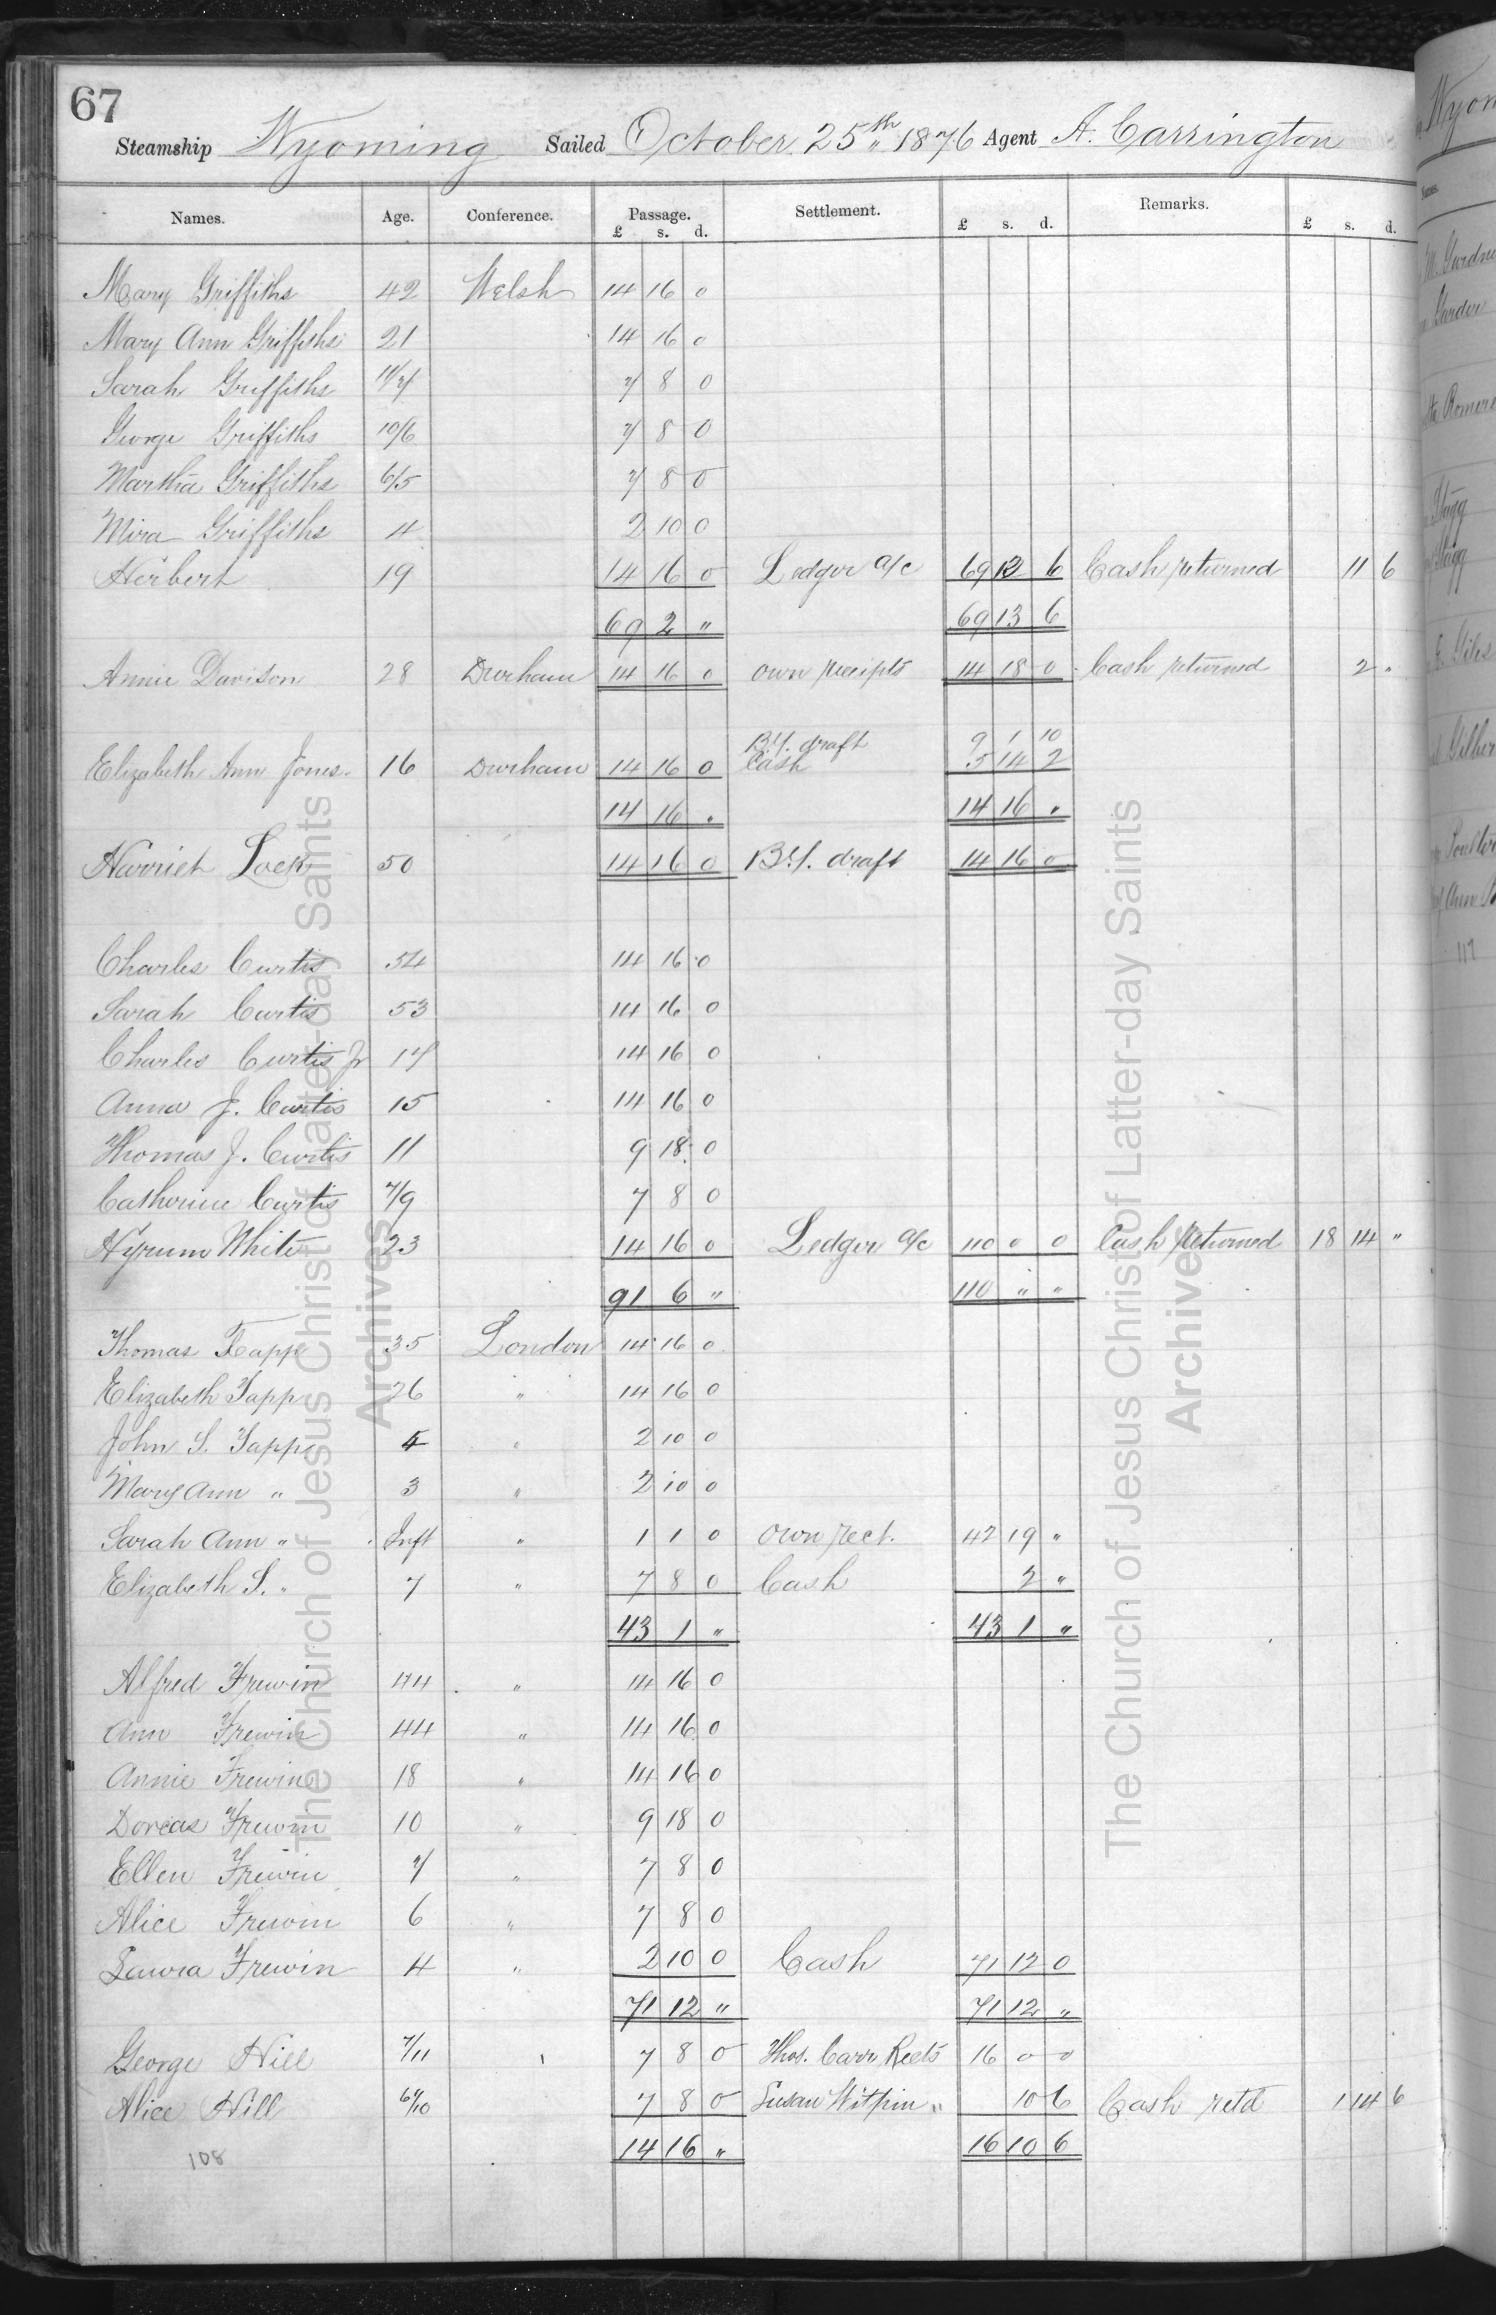 67
Steamship Wyoming Sailed October 25th 1876 Agent A. Carrington
Names. Age. Conference. Passage. £ s. d. Settlement. £ s. d. Remarks. £ s. d.
Mary Griffiths 42 Welsh 14 16 0
Mary Ann Griffiths 21 14 16 0
Sarah Griffiths 11/7 7 8 0
George Griffiths 10/6 7 8 0
Martha Griffiths 6/5 7 8 0
Mira Griffiths 4 2 10 0
Herbert 19 14 16 0 Ledger a/c 69 13 6 Cash returned 11 6
69 2 " 69 13 6
Annie Davison 28 Durham 14 16 0 own receipts 14 18 0 Cash returned 2 "
B.Y. draft 9 1 10
Elizabeth Ann Jones 16 Durham 14 16 0 Cash 5 14 2
14 16 " 14 16 "
Harriet Lock 50 14 16 0 B.Y. draft 14 16 0
Charles Curtis 54 14 16 0
Sarah Curtis 53 14 16 0
Charles Curtis Jr 17 14 16 0
Anna J. Curtis 15 14 16 0
Thomas J. Curtis 11 9 18 0
Catherine Curtis 7/9 7 8 0
Hyrum White 23 14 16 0 Ledger a/c 110 0 0 Cash returned 18 14 "
91 6 " 110 " "
Thomas Tapp 35 London 14 16 0
Elizabeth Tapp 26 " 14 16 0
John S. Tapp 4 " 2 10 0
Mary Ann " 3 " 2 10 0
Sarah Ann " Inft " 1 1 0 own rect. 42 19 "
Elizabeth S. " 7 " 7 8 0 Cash 2 "
43 1 " 43 1 "
Alfred Frewin 44 " 14 16 0
Ann Frewin 44 " 14 16 0
Annie Frewin 18 " 14 16 0
Dorcas Frewin 10 " 9 18 0
Ellen Frewin 7 " 7 8 0
Alice Frewin 6 " 7 8 0
Laura Frewin 4 " 2 10 0 Cash 71 12 0
71 12 " 71 12 "
George Hill 7/11 7 8 0 Thos. Carr Rects 16 0 0
Alice Hill 6/10 7 8 0 Susan Witpin " 10 6 Cash retd 1 14 6
14 16 " 16 10 6
108
The Church of Jesus Christ of Latter-day Saints
Archives
The Church of Jesus Christ of Latter-day Saints
Archives